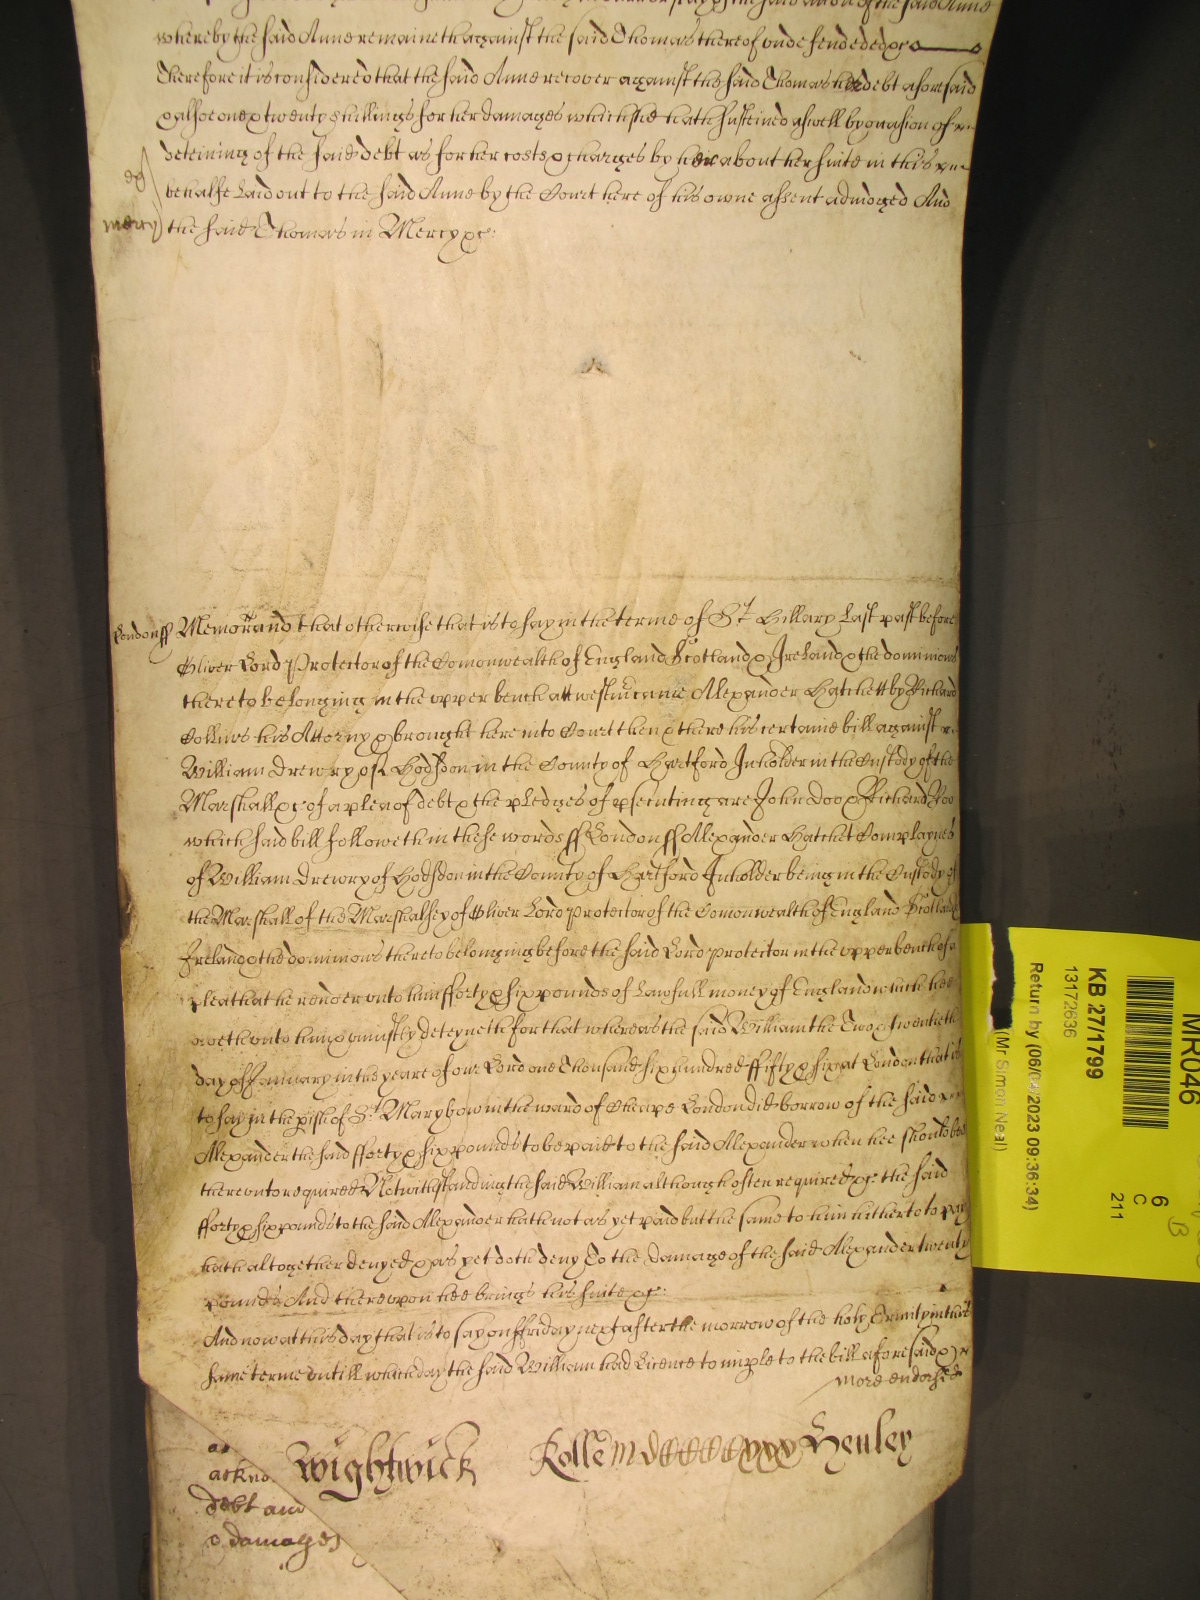 whereby the said Anne remaineth against the said Thomas thereof undefended &c
Therefore it is considered that the said Anne recover against the said Thomas her debt aforesaid
& alsoe one & twenty shillings for her damages which shee hath susteined aswell by occasion of
deteining of the said debt as for her costs & charges by her about her suite in this
behalfe Laid out to the said Anne by the Court here of his owne assent adiudged And
mercy the said Thomas in Mercy &c:
London ss Memorand that otherwise that is to say in the terme of St Hillary Last past before
Oliver Lord Protector of the Comonwealth of England Scotland & Ireland & the dominions
thereto belonging in the upper bench att westm came Alexander Hatchett by Richard
Collins his Attorny & brought here into Court then & there his certaine bill against
William Drewry of Hodsdon in the County of Hartford Inholder in the Custody of the
Marshall &c of a plea of debt & the pledges of psecuting are John Doo & Richard Roo
which said bill followeth in these words ss London ss Alexander Hatchet Complaynes
of William Drewry of Hodsdon in the County of Hartford Inholder being in the Custody of
the Marshall of the Marshalsey of Oliver Lord Protector of the Comonwealth of England Scotland
Ireland & the dominions thereto belonging before the said Lord protector in the upper bench of a
plea that he render unto him fforty & six pounds of Lawfull money of England which hee
oweth unto him & uniustly deteyneth for that whereas the said William the Two & twentieth
day of January in the yeare of our Lord one Thousand six hundred ffifty & six at London that is
to say in the pish of St Mary bow in the ward of Cheape London did borrow of the said
Alexander the said fforty & six pounds to be paid to the said Alexander when hee should be
thereunto required Notwithstanding the said William although often required &c the said
fforty & six pounds to the said Alexander hath not as yet paid but the same to him hitherto to pay
hath altogether denyed & as yet doth deny To the damage of the said Alexander twenty
pounds And thereupon hee brings his suite &c:
And now at this day that is to say on ffriday next after the morrow of the holy Trinity in this
same terme untill which day the said William had Licence to imple to the bill aforesaid &
more endorsed
Wightwick Rolle MDCCCCCxxx Henley
ackno
debt and
damages
MR046
KB 27/1799
13172636
Return by (06/04/2023 09:36:34)
(Mr Simon Neal)
6
C
211
B